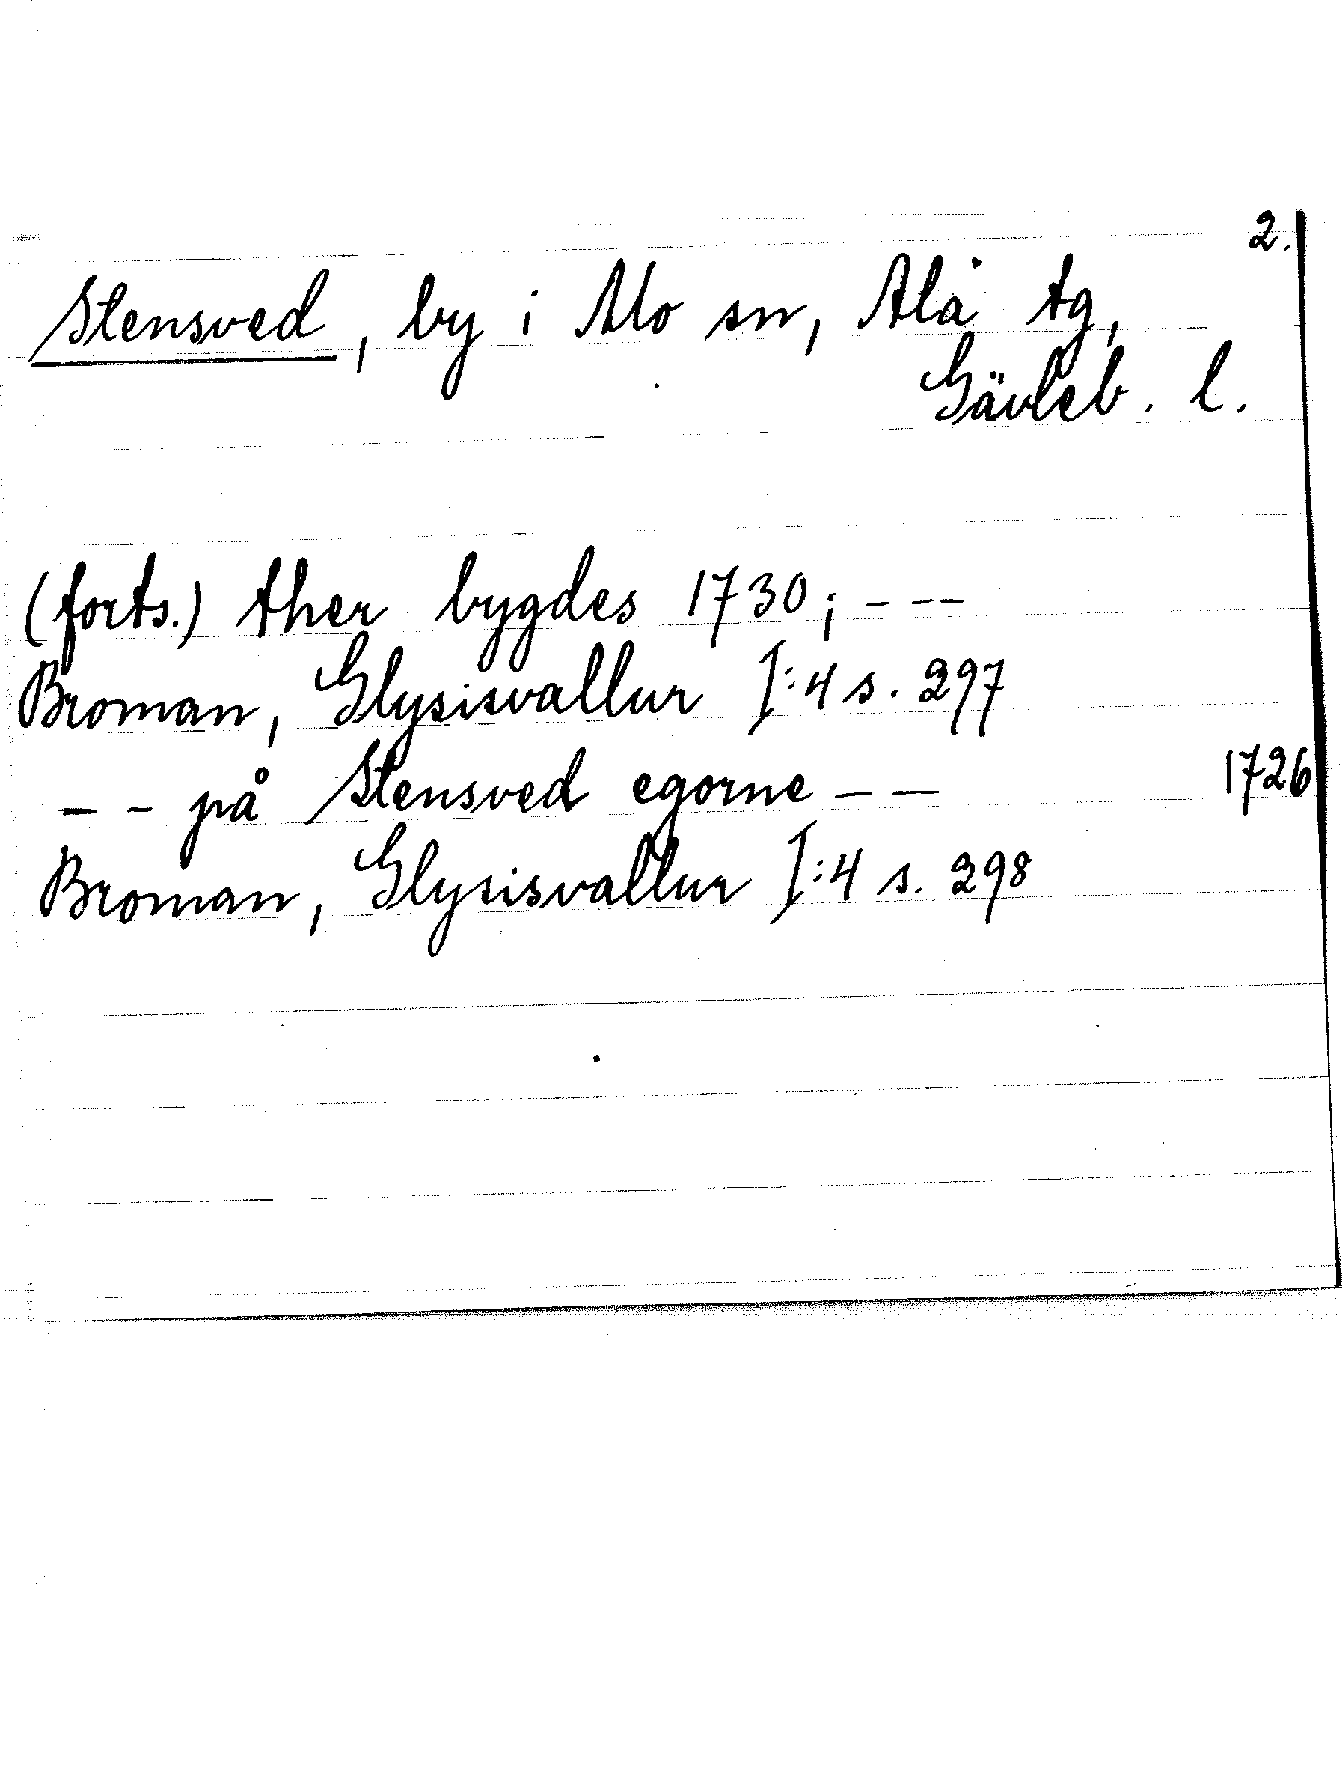 2.
Stensved, by i Mo sn, Ala tg,
Gävleb. l.
(forts.) ther bygdes 1730; - --
Broman, Glysisvallur I:4 s. 297
-- på Stensved egorne -- 1726
Broman, Glysisvallur I:4 s. 298